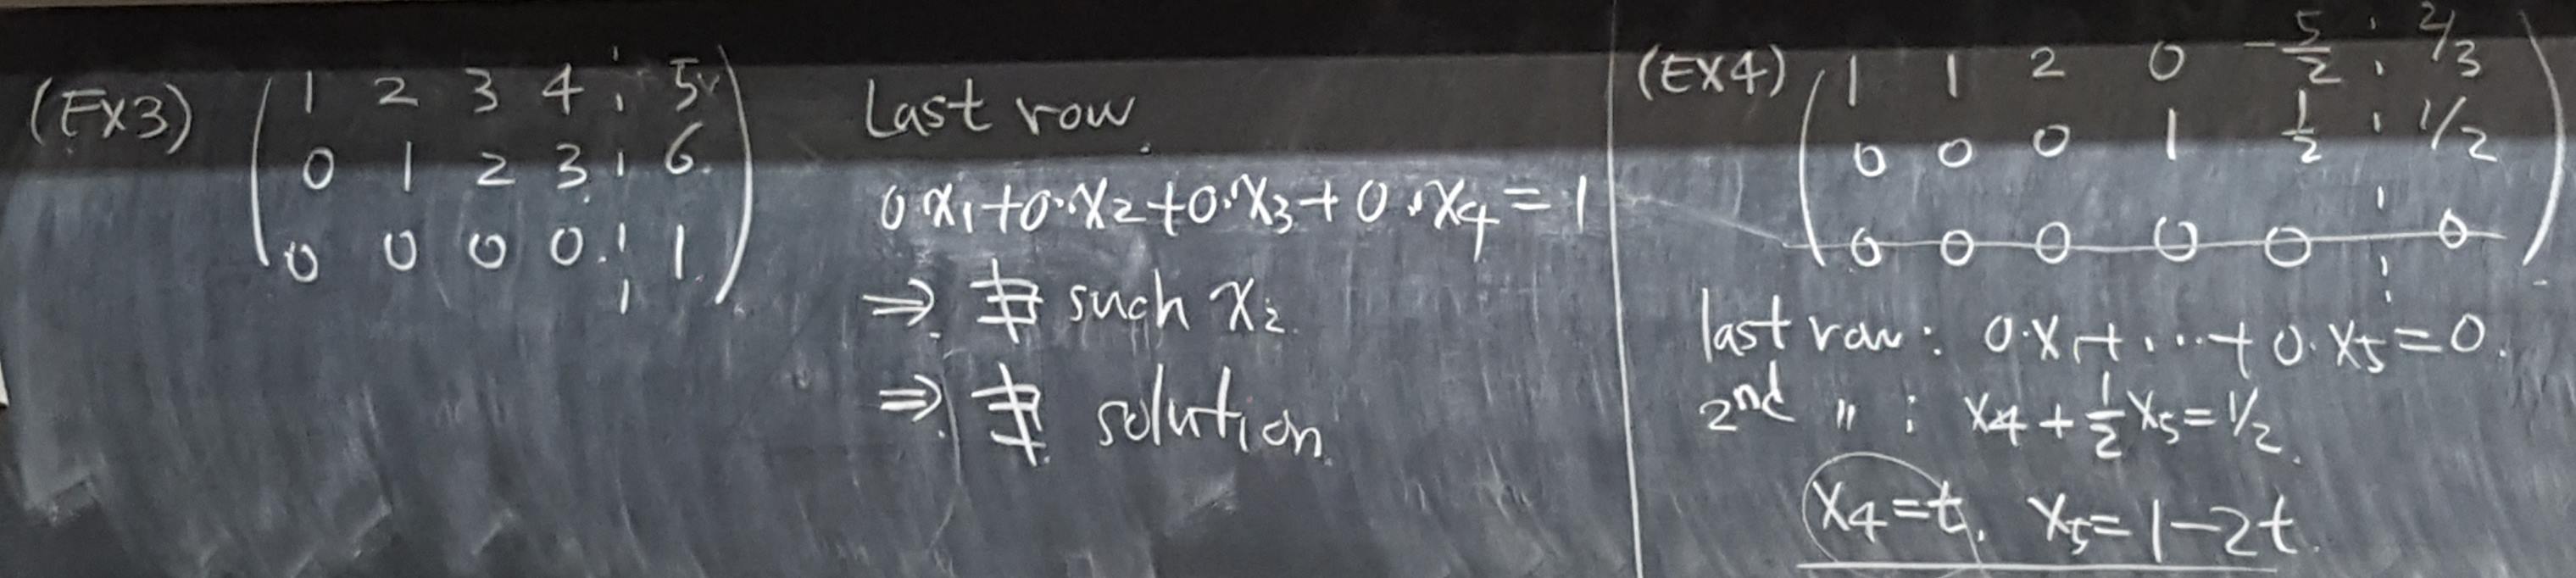 (EX3) ( 1 2 3 4 ¦ 5
0 1 2 3 ¦ 6
0 0 0 0 ¦ 1 )
Last row.
0·x₁+0·x₂+0·x₃+0·x₄=1
⇒ ∄ such xᵢ.
⇒ ∄ solution.
(EX4) ( 1 1 2 0 -5/2 ¦ 2/3
0 0 0 1 1/2 ¦ 1/2
0 0 0 0 0 ¦ 0 )
last row: 0·x₁+···+0·x₅=0.
2nd " : x₄+1/2x₅=1/2.
x₄=t, x₅=1-2t.